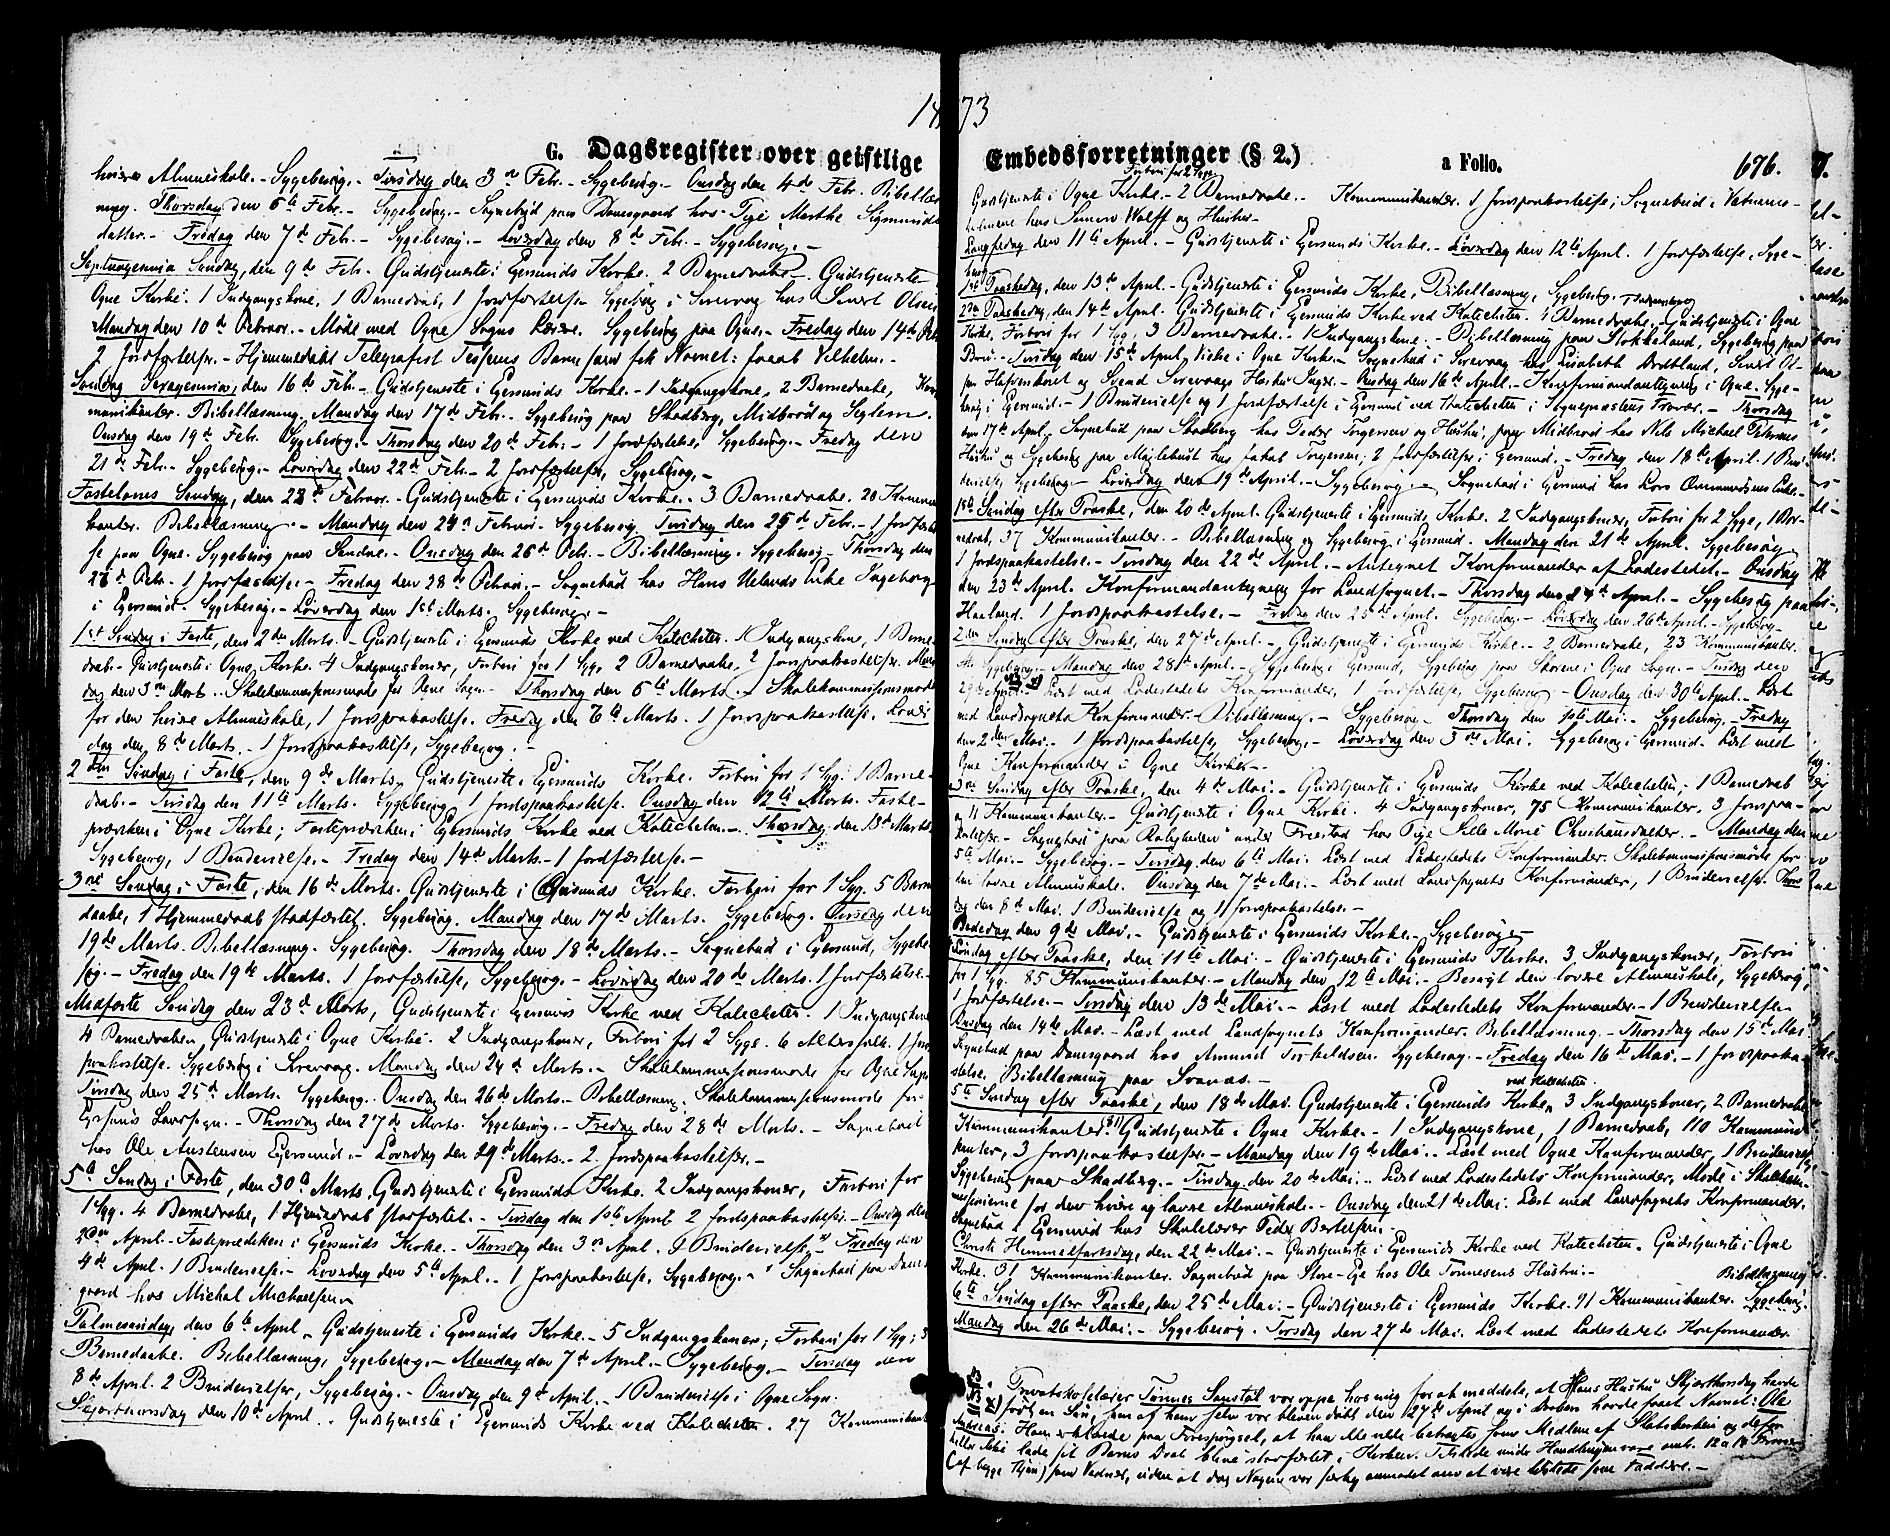 1873
G. Dagsregister over geistlige Embedsforretninger (§ 2.) a Follo. 676.
høiere Almueskole. - Sygebesøg. - Tirsdag den 3 Febr. - Sygebesøg. - Onsdag den 4de Febr. Bibellæs-
ning. Thorsdag den 6te Febr. - Sygebesøg. - Sognebud paa Damsgaard hos Pige Marthe Sigmunds-
datter. - Fredag den 7de Febr. - Sygebesøg. - Løverdag den 8de Febr. - Sygebesøg. -
Septuagesima Søndag, den 9de Febr. Gudstjeneste i Egersunds Kirke. 2 Barnedaabe. - Gudstjeneste
Ogne Kirke. 1 Indgangskone, 1 Barnedaab, 1 Jordfæstelse. Sygebesøg i Sirevaag hos Sivert Olsen
Mandag den 10de Februar. - Møde med Ogne Sogns Lærere. Sygebesøg paa Ogne. - Fredag den 14de Feb
2 Jordfæstelser. - Hjemmedøbt Telegrafist Barn som fik Navnet: Jacob Vilhelm. -
Søndag Sexagesima, den 16de Feb. - Gudstjeneste i Egersunds Kirke. - 1 Indgangskone, 2 Barnedaabe, Kom
munikanter. Bibellæsning. Mandag den 17de Febr. Sygebesøg paa Skadberg, Midbrød og
Onsdag den 19de Feb. Sygebesøg. - Thorsdag den 20de Feb. - 1 Jordfæstelse, Sygebesøg. - Fredag den
21de Feb. - Sygebesøg. - Løverdag den 22de Feb. - 2 Jordfæstelser, Sygebesøg. -
Fastelavns Søndag, den 23de Februar. - Gudstjeneste i Egersunds Kirke. - 3 Barnedaabe. 20 Kommuni
kanter. Bibellæsning. - Mandag den 24de Februar. Sygebesøg, Tirsdag den 25de Feb. - 1 Jordfæstel
se paa Ogne. Sygebesøg paa - Onsdag den 26de Feb. - Bibellæsning. Sygebesøg. - Thorsdag den
27de Feb. 1 Jordfæstelse. - Fredag den 28de Februar. - Sognebud hos Hans Uelands Enke Ingeborg
i Egersund. Sygebesøg. - Løverdag den 1ste Marts. Sygebesøg. -
1ste Søndag i Faste, den 2den Marts. - Gudstjeneste i Egersunds Kirke ved Katecheten. 1 Indgangskone, 1 Barne-
daab. Gudstjeneste i Ogne Kirke. 4 Indgangskoner, Forbøn for 1 Syg, 2 Barnedaabe, 2 Jordspaakastelser. Man
dag den 3die Marts. - Skolekommissionsmøde for Ogne Sogn. - Thorsdag den 6te Marts. - Skolekommissionsmøde
for den høiere Almueskole, 1 Jordspaakastelse. Fredag den 7de Marts. 1 Jordspaakastelse. Løver
dag den 8de Marts. - 1 Jordspaakastelse, Sygebesøg. -
2den Søndag i Faste, den 9de Marts. Gudstjeneste i Egersunds Kirke. Forbøn for 1 Syg. 1 Barne-
daab. - Tirsdag den 11te Marts. Sygebesøg 1 Jordspaakastelse. Onsdag den 12te Marts. Faste-
prædiken i Ogne Kirke; Fasteprædiken i Egersunds Kirke ved Katecheten. - Thorsdag den 13de Marts
Sygebesøg, 1 Brudevielse. - Fredag den 14de Marts. - 1 Jordfæstelse. -
3die Søndag i Faste, den 16de Marts. Gudstjeneste i Egersunds Kirke. Forbøn for 1 Syg. 5 Barne
daabe, 1 Hjemmedaab stadfæstet. Sygebesøg. Mandag den 17de Marts. Sygebesøg. Onsdag den
19de Marts. Bibellæsning. Sygebesøg. Thorsdag den 18de Marts. - Sognebud i Egersund, Sygebe
søg. - Fredag den 19de Marts. 1 Jordfæstelse, Sygebesøg. - Løverdag den 20de Marts. 1 Jordfæstelse. -
Midfaste Søndag den 23de Marts, Gudstjeneste i Egersunds Kirke ved Katecheten. 1 Indgangskone
4 Barnedaabe. Gudstjeneste i Ogne Kirke. 2 Indgangskoner, Forbøn for 2 Syge. 6 Altersfolk. 1 Jords
paakastelse. Sygebesøg i Sirevaag. Mandag den 24de Marts. - Skolekommissionsmøde for Ogne Sogn
Tirsdag den 25de Marts. Sygebesøg. Onsdag den 26de Marts. - Bibellæsning. Skolekommissionsmøde for
Egersunds Landsogn. - Thorsdag den 27de Marts. Sygebesøg. - Fredag den 28de Marts. - Sognebud
hos Ole Austensen Egersund. - Løverdag den 29de Marts. - 2 Jordspaakastelser. -
5te Søndag i Faste, den 30te Marts. Gudstjeneste i Egersunds Kirke. 2 Indgangskoner, Forbøn for
1 Syg. 4 Barnedaabe, 1 Hjemmedaab stadfæstet. - Tirsdag den 1ste April 2 Jordspaakastelser. - Onsdag den
2den April. - Fasteprædiken i Egersunds Kirke. - Thorsdag den 3die April. 1 Brudevielse. Fredag den
4de April. 1 Brudevielse. - Løverdag den 5te April. - 1 Jordspaakastelse, Sygebesøg. - Sognebud paa Dams
gaard hos Michal Michaelsen
Palmesøndag, den 6te April. Gudstjeneste i Egersunds Kirke. - 5 Indgangskoner; Forbøn for 1 Syg; 3
Barnedaabe. Bibellæsning, Sygebesøg. - Mandag den 7de April. - Sygebesøg. - Tirsdag den
8de April. 2 Brudevielser, Sygebesøg. - Onsdag den 9de April. - 1 Brudevielse i Ogne Sogn.
Skjærthorsdag den 10de April. - Gudstjeneste i Egersunds Kirke ved Katecheten. 27 Kommunikant
Forbøn for 2 Syge
Gudstjeneste i Ogne Kirke. - 2 Barnedaabe. - Kommunikanter. 1 Jordspaakastelse; Sognebud i
hos Wolff og Hustru. -
Langfredag den 11te April. - Gudstjeneste i Egersunds Kirke. - Løverdag den 12te April. 1 Jordfæstelse, Syge-
besøg
1ste Paaskedag, den 13de April. - Gudstjeneste i Egersunds Kirke, Bibellæsning, Sygebesøg.
2den Paaskedag, den 14de April. Gudstjeneste i Egersunds Kirke ved Katecheten. 1 Barnedaab. - Gudstjeneste i Ogne
Kirke, Forbøn for 1 Syg, 3 Barnedaabe. - 1 Indgangskone. - Bibellæsning paa Stokkeland, Sygebesøg paa
- Tirsdag den 15de April, Vielse i Ogne Kirke. - Sognebud i Sirevaag hos Lisabeth Sivert Ol-
sen og Svend Sirevaags Hustru Inger. - Onsdag den 16de April. - Konfirmandantegning i Ogne. Syge-
besøg i Egersund. - 1 Brudevielse og 1 Jordfæstelse i Egersund ved Katecheten i Sognepræstens Fravær. - Thorsdag
den 17de April. Sognebud paa Skadberg hos Peder Torgersen og Hustru; paa Midbrød hos Nils Michael Petersens
Hustru og Sygebesøg paa Maglebust hos Jakob Torgersen; 2 Jordfæstelser i Egersund. - Fredag den 18de April. 1 Bru
devielse, Sygebesøg. - Løverdag den 19de April. - Sygebesøg. - Sognebud i Egersund hos Lars Enke.
1ste Søndag efter Paaske, den 20de April. Gudstjeneste i Egersunds Kirke. 2 Indgangskoner, Forbøn for 2 Syge, 1 Bar-
nedaab, 37 Kommunikanter. - Bibellæsning og Sygebesøg i Egersund. Mandag den 21de April. Sygebesøg
1 Jordspaakastelse. - Tirsdag den 22de April. - Antegnet Konfirmander af Ladestedet. - Onsdag
den 23de April. Konfirmandantegning for Landsognet. - Thorsdag den 24de April. - Sygebesøg paa
Haaland. 1 Jordspaakastelse. - Fredag den 25de April. Sygebesøg. - Løverdag den 26de April. - Sygebesøg. -
2den Søndag efter Paaske, den 27de April. - Gudstjeneste i Egersunds Kirke. - 2 Barnedaabe, 23 Kommunikanter.
Sygebesøg. - Mandag den 28de April. - Sygebesøg i Egersund, Sygebesøg paa i Ogne Sogn. - Tirsdag den
29de April. Læst med Ladestedets Konfirmander, 1 Jordfæstelse, Sygebesøg. - Onsdag den 30te April. - Læst
med Landsognets Konfirmander. Bibellæsning. - Sygebesøg. - Thorsdag den 1ste Mai. - Sygebesøg. - Fredag
den 2den Mai. - 1 Jordspaakastelse, Sygebesøg. - Løverdag den 3die Mai. Sygebesøg i Egersund. - Læst med
Ogne Konfirmander i Ogne Kirke. -
3die Søndag efter Paaske, den 4de Mai. - Gudstjeneste i Egersunds Kirke ved Katecheten; 1 Barnedaab
og 11 Kommunikanter. - Gudstjeneste i Ogne Kirke. 4 Indgangskoner, 75 Kommunikanter, 3 Jordspaa-
kastelser. - Sognebud paa "Roligheden" under Friestad hos Pige Sille Marie Christiansdatter. - Mandag den
5te Mai. - Sygebesøg. - Tirsdag den 6te Mai. Læst med Ladestedets Konfirmander. Skolekommissionsmøde for
den lavere Almueskole. Onsdag den 7de Mai. - Læst med Landsognets Konfirmander, 1 Brudevielse. Thors
dag den 8de Mai. 1 Brudevielse og 1 Jordspaakastelse. -
Bededag den 9de Mai. - Gudstjeneste i Egersunds Kirke. - Sygebesøg. -
Søndag efter Paaske, den 11te Mai. - Gudstjeneste i Egersunds Kirke. 3 Indgangskoner, Forbøn
for 1 Syg. 85 Kommunikanter. - Mandag den 12te Mai. - Besøgt den lavere Almueskole, Sygebesøg,
1 Jordfæstelse. - Tirsdag den 13de Mai. - Læst med Ladestedets Konfirmander. - 1 Brudevielse.
Onsdag den 14de Mai. - Læst med Landsognets Konfirmander. Bibellæsning. - Thorsdag den 15de Mai
Sognebud paa Damsgaard hos Amund Torkeldsen. Sygebesøg. - Fredag den 16de Mai. - 1 Jordspaaka-
stelse. Bibellæsning paa Svanæs. -
ved Katecheten.
5te Søndag efter Paaske, den 18de Mai. Gudstjeneste i Egersunds Kirke, 3 Indgangskoner, 2 Barnedaabe
Kommunikanter 31. Gudstjeneste i Ogne Kirke. - 1 Indgangskone, 1 Barnedaab, 110 Kommuni
kanter, 3 Jordspaakastelser. - Mandag den 19de Mai. - Læst med Ogne Konfirmander, 1 Brudevielse,
Sygebesøg paa Skadberg. - Tirsdag den 20de Mai. - Læst med Ladestedets Konfirmander, Møde i Skolekom-
missionerne for den høiere og lavere Almueskole. - Onsdag den 21de Mai. Læst med Landsognets Konfirmander.
Sognebud i Egersund hos Skolelærer Peder Bertelsen. -
Christi Himmelfartsdag, den 22de Mai. - Gudstjeneste i Egersunds Kirke ved Katecheten. Gudstjeneste i Ogne
Kirke. 31 Kommunikanter. Sognebud paa Store-Eie hos Ole Tønnesens Hustru. - Bibellæsning
6te Søndag efter Paaske, den 25de Mai. - Gudstjeneste i Egersunds Kirke. 91 Kommunikanter. Sygebesøg.
Mandag den 26de Mai. - Sygebesøg. Tirsdag den 27de Mai. Læst med Ladestedets Konfirmander.
x) Privatskolelærer Tønnes Sanstøl var oppe hos mig for at meddele, at Hans Hustru Skjærthorsdag havde
født en Søn, som af ham selv var bleven døbt den 27de April og i Daaben havde faaet Navnet: Ole
Andreas. Han erklærede paa Forespørgsel, at han ikke vilde betragtes som Medlem af Statskirken og derfor
heller ikke lade sit Barns Daab blive stadfæstet i Kirken. Tilstede under Handlingen vare omt. 12 a 14 Personer
(af begge Kjøn) som Vidner, uden at dog Nogen var særlig anmodet om at være tilstede som Faddere. -